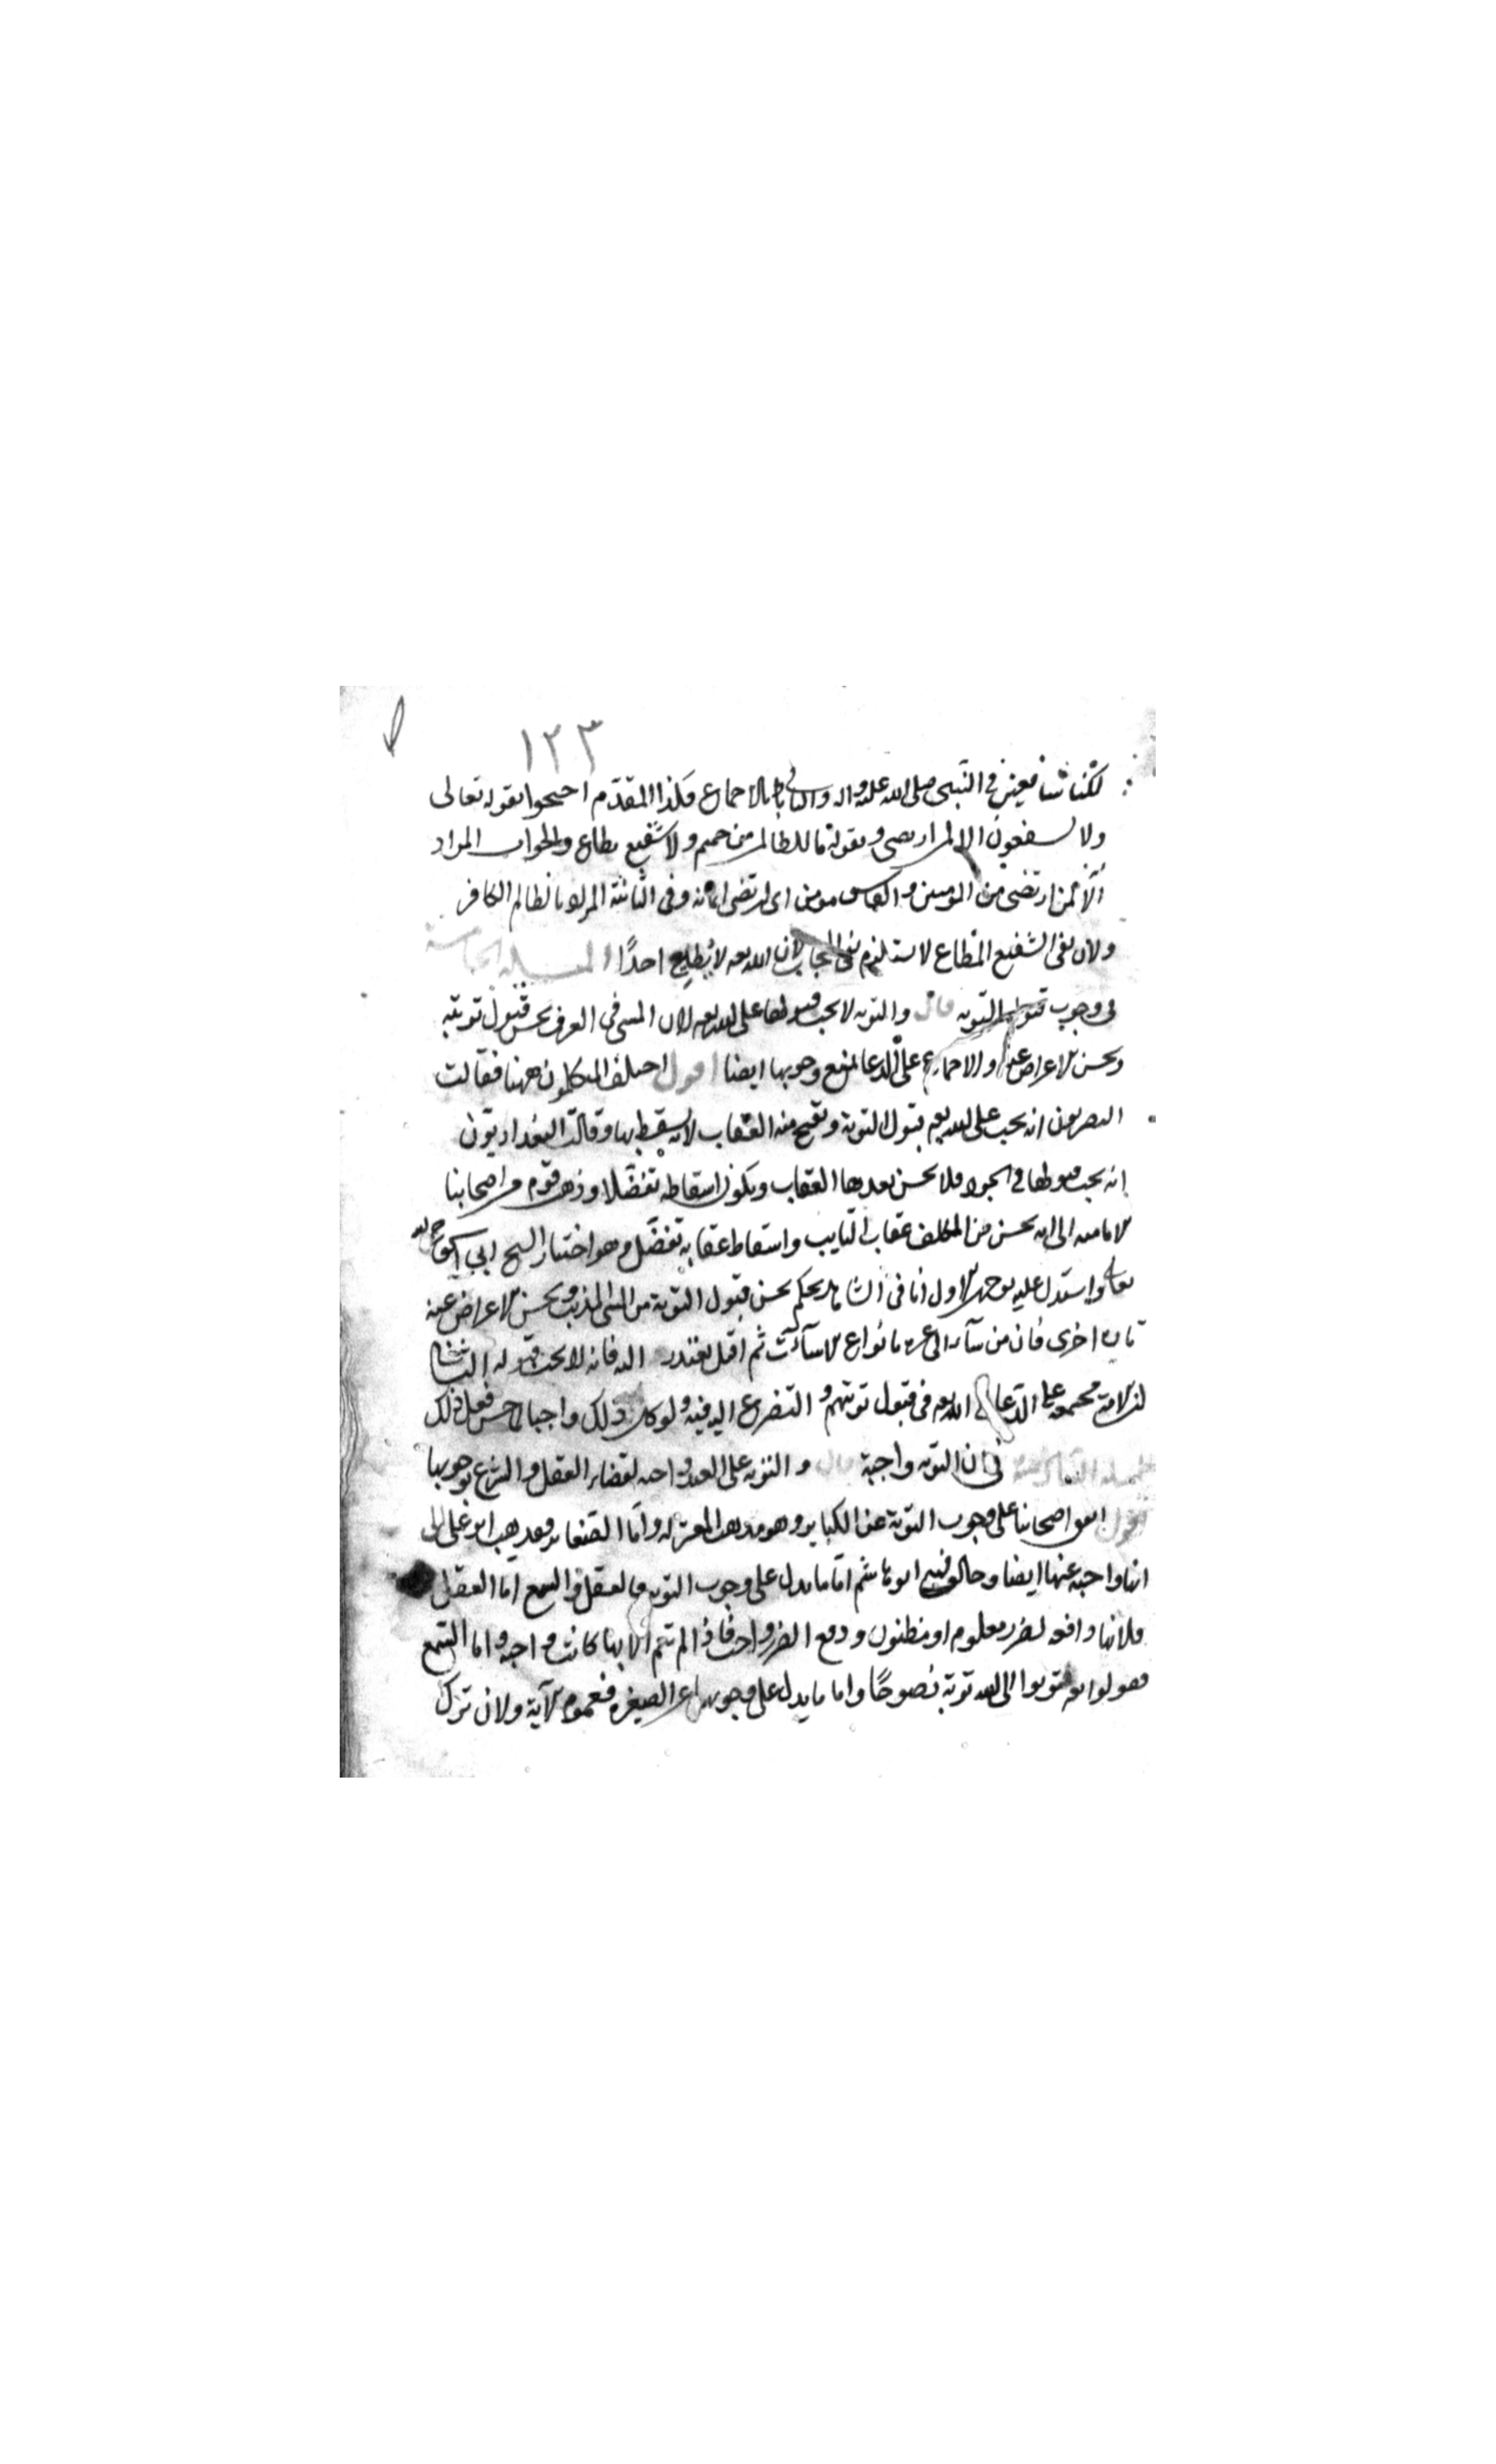 ١٢٣
لكنا شافعين في النبي صلى الله عليه واله والتالي باطل بالاجماع فكذا المقدم احتجوا بقوله تعالى
ولا يشفعون الا لمن ارتضى وبقوله ما للظالمين من حميم ولا شفيع يطاع والجواب المراد
الا لمن ارتضى من المومنين والفاسق مومن اى ارتضى ايمانه وفي الثانية المراد بالظالم الكافر
ولان نفى الشفيع المطاع لا يستلزم نفى المجاب لان الله تعه لا يطيع احدًا المسئلة الخامسة
في وجوب قبول التوبه قال والتوبه لا يجب قبولها على الله تعه لان المسى في العرف يحسن قبول توبته
ويحسن الاعراض عنه والاجماع على الدعا يمنع وجوبها ايضا اقول اختلف المتكلمون ههنا فقالت
البصريون انه يجب على الله تعه قبول التوبة ويقبح منه العقاب لانه يسقط بها وقالت البغداديون
انه يجب قبولها في الجود فلا يحسن بعدها العقاب ويكون اسقاطه تفضلا وذهب قوم من اصحابنا
الاماميه الى انه يحسن من المكلف عقاب التايب واسقاط عقابه تفضل وهو اختيار الشيخ ابي اسحق رحمه الله
تعالى واستدل عليه بوجهين الاول انا في الشاهد نحكم بحسن قبول التوبة من المسى المذنب ويحسن الاعراض عنه
تارة اخرى فان من سآء الى غيره بانواع الاسآءت ثم اقبل يعتذر اليه فانه لا يجب قبوله الثانى
ان الامة مجمعة على الدعا الى الله تعه في قبول توبتهم والتضرع اليه فيه ولو كان ذلك واجبا لما حسن فعل ذلك
المسئلة السادسة في ان التوبه واجبة قال والتوبه على العبد واجبه لقضاء العقل والشرع بوجوبها
اقول اتفق اصحابنا على وجوب التوبة عن الكباير وهو مذهب المعتزله واما الصغاير فقد ذهب ابو على الى
انها واجبه عنها ايضا وخالف فيه ابو هاشم اما ما يدل على وجوب التوبه فالعقل والسمع اما العقل
فلانها دافعه لضرر معلوم او مظنون ودفع الضرر واجب فاذا لم تتم الا بها كانت واجبه واما السمع
فقوله تعه توبوا الى الله توبة نصوحًا واما ما يدل على وجوبها عن الصغيره فعموم الآية ولان ترك